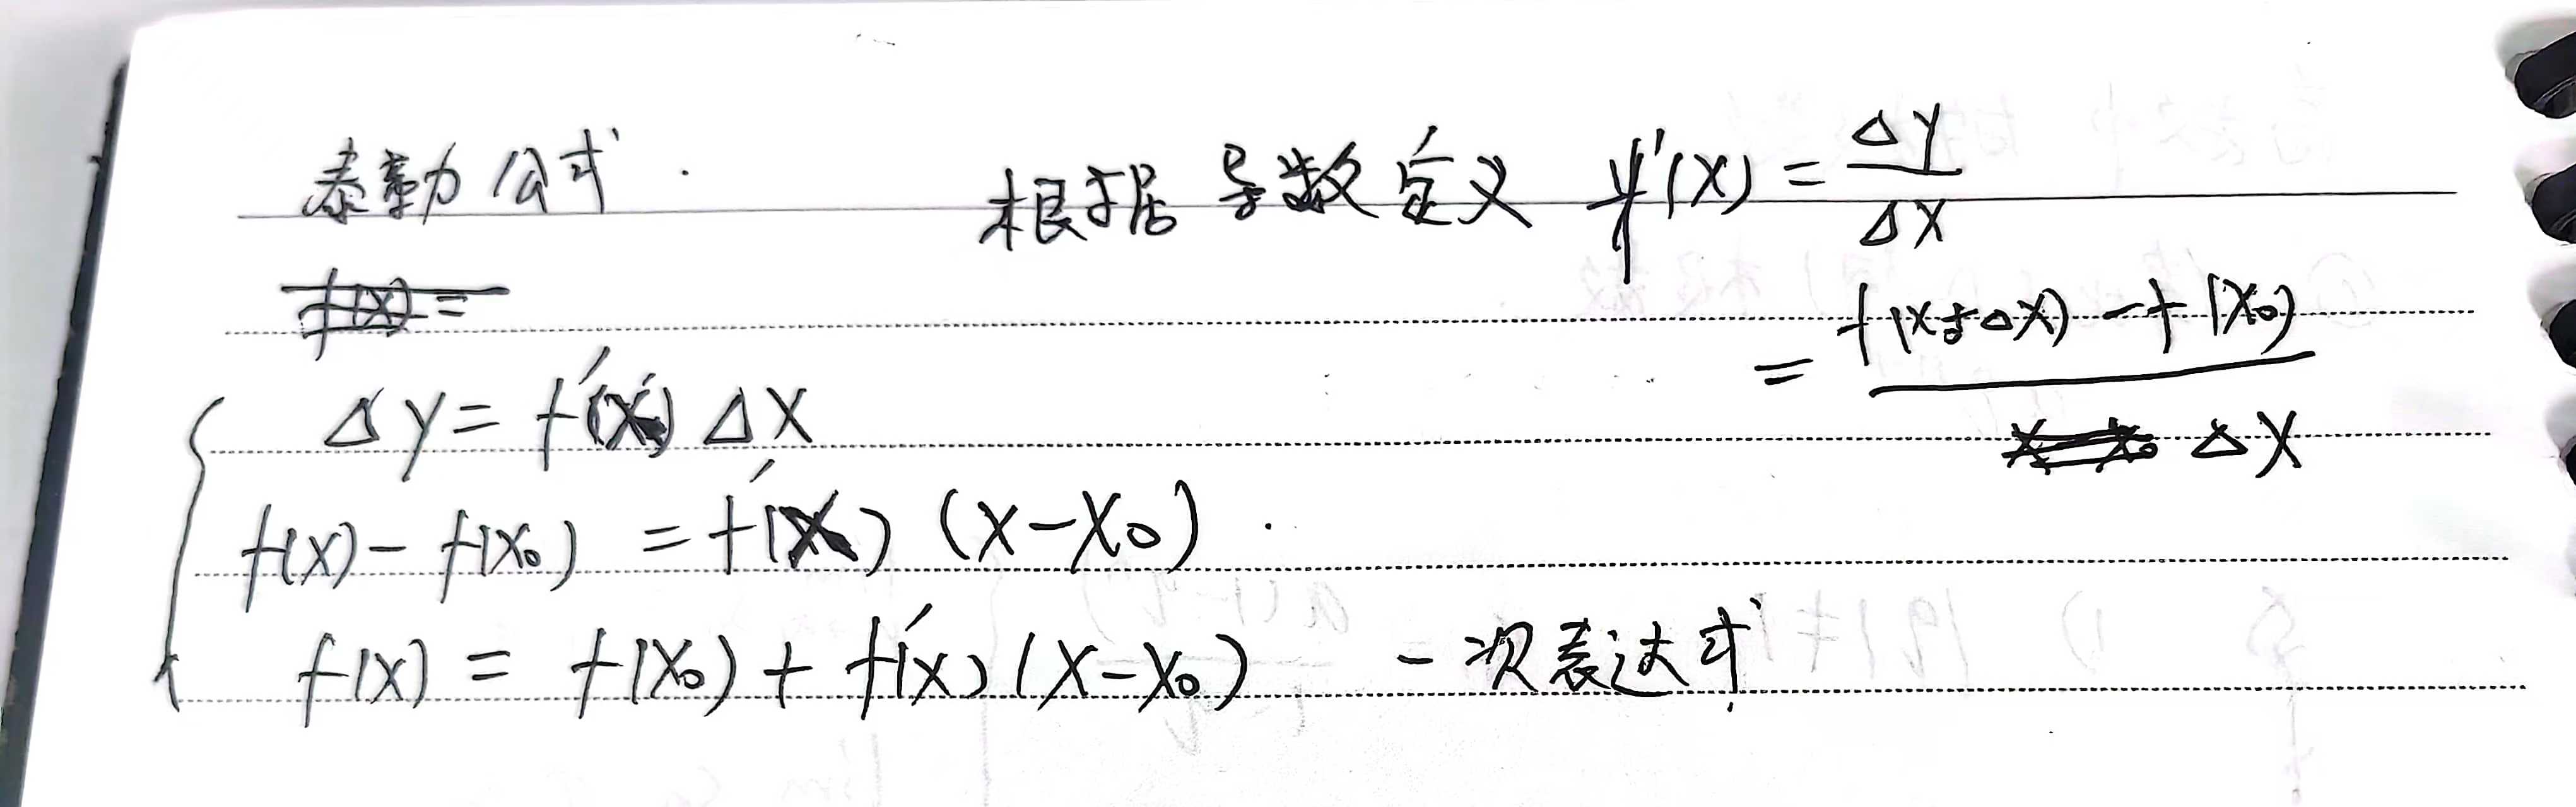 泰勒公式. 根据导数定义 f'(x) = Δy/Δx
f(x) =
= f(x+Δx) - f(x₀) / Δx
Δy = f'(x) Δx
f(x) - f(x₀) = f'(x) (x-x₀).
f(x) = f(x₀) + f'(x) (x-x₀) 一次表达式